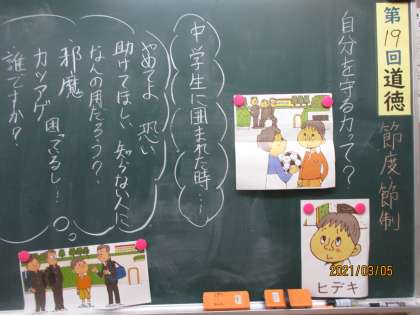 第19回道徳
節度節制
自分を守る力って？
中学生に囲まれた時…！
やめてよ 恐い
助けてほしい 知らない人に
なんの用だろう？
邪魔
カツアゲ 困ってるし！
誰ですか？
ヒデキ
2021/03/05